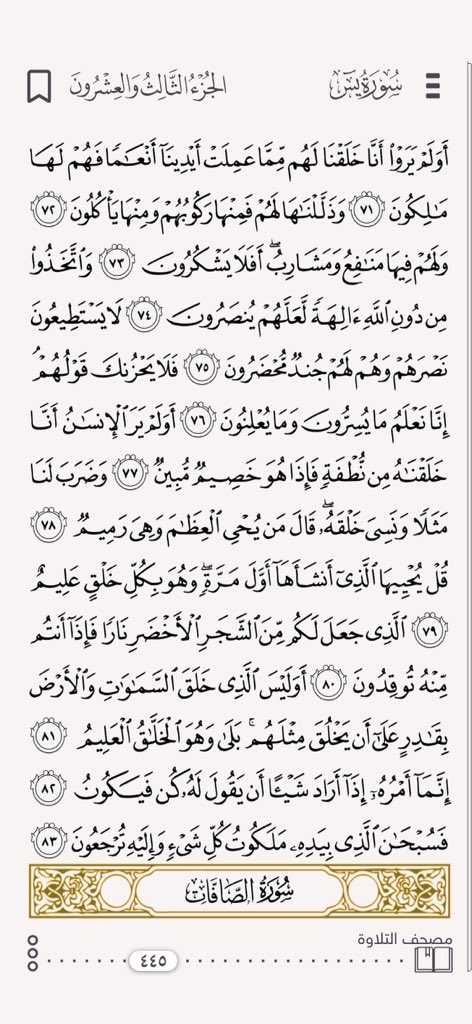 سُورَةُ يسٓ
الجُزْءُ الثَّالِثُ وَالعِشْرُونَ
أَوَلَمْ يَرَوْا۟ أَنَّا خَلَقْنَا لَهُم مِّمَّا عَمِلَتْ أَيْدِينَآ أَنْعَـٰمًا فَهُمْ لَهَا
مَـٰلِكُونَ ٧١ وَذَلَّلْنَـٰهَا لَهُمْ فَمِنْهَا رَكُوبُهُمْ وَمِنْهَا يَأْكُلُونَ ٧٢
وَلَهُمْ فِيهَا مَنَـٰفِعُ وَمَشَارِبُ ۖ أَفَلَا يَشْكُرُونَ ٧٣ وَٱتَّخَذُوا۟
مِن دُونِ ٱللَّهِ ءَالِهَةً لَّعَلَّهُمْ يُنصَرُونَ ٧٤ لَا يَسْتَطِيعُونَ
نَصْرَهُمْ وَهُمْ لَهُمْ جُندٌ مُّحْضَرُونَ ٧٥ فَلَا يَحْزُنكَ قَوْلُهُمْ ۘ
إِنَّا نَعْلَمُ مَا يُسِرُّونَ وَمَا يُعْلِنُونَ ٧٦ أَوَلَمْ يَرَ ٱلْإِنسَـٰنُ أَنَّا
خَلَقْنَـٰهُ مِن نُّطْفَةٍ فَإِذَا هُوَ خَصِيمٌ مُّبِينٌ ٧٧ وَضَرَبَ لَنَا
مَثَلًا وَنَسِىَ خَلْقَهُۥ ۖ قَالَ مَن يُحْىِ ٱلْعِظَـٰمَ وَهِىَ رَمِيمٌ ٧٨
قُلْ يُحْيِيهَا ٱلَّذِىٓ أَنشَأَهَآ أَوَّلَ مَرَّةٍ ۖ وَهُوَ بِكُلِّ خَلْقٍ عَلِيمٌ
٧٩ ٱلَّذِى جَعَلَ لَكُم مِّنَ ٱلشَّجَرِ ٱلْأَخْضَرِ نَارًا فَإِذَآ أَنتُم
مِّنْهُ تُوقِدُونَ ٨٠ أَوَلَيْسَ ٱلَّذِى خَلَقَ ٱلسَّمَـٰوَٰتِ وَٱلْأَرْضَ
بِقَـٰدِرٍ عَلَىٰٓ أَن يَخْلُقَ مِثْلَهُم ۚ بَلَىٰ وَهُوَ ٱلْخَلَّـٰقُ ٱلْعَلِيمُ ٨١
إِنَّمَآ أَمْرُهُۥٓ إِذَآ أَرَادَ شَيْـًٔا أَن يَقُولَ لَهُۥ كُن فَيَكُونُ ٨٢
فَسُبْحَـٰنَ ٱلَّذِى بِيَدِهِۦ مَلَكُوتُ كُلِّ شَىْءٍ وَإِلَيْهِ تُرْجَعُونَ ٨٣
سُورَةُ الصَّافَّاتِ
مصحف التلاوة
٤٤٥